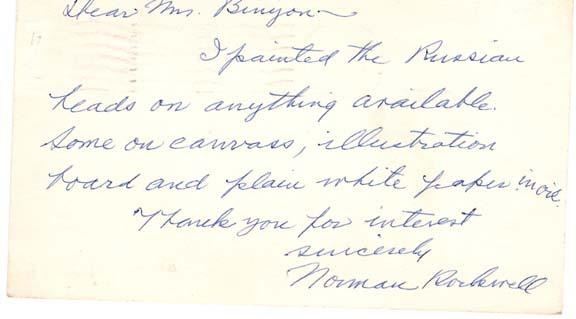 Dear Mrs. Binyon
I painted the Russian
heads on anything available.
Some on canvass, illustration
board and plain white paper in oil.
Thank you for interest
sincerely
Norman Rockwell